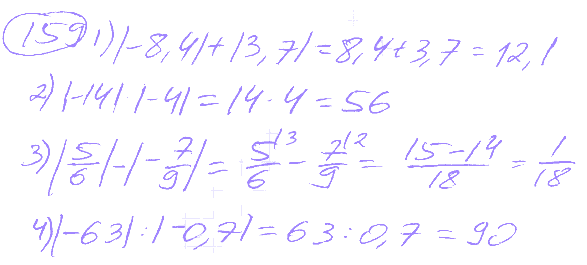 159 1) |-8,4| + |3,7| = 8,4 + 3,7 = 12,1
2) |-14| · |-4| = 14 · 4 = 56
3) |5/6| - |-7/9| = 5/6^{\3} - 7/9^{\2} = (15-14)/18 = 1/18
4) |-63| : |-0,7| = 63 : 0,7 = 90